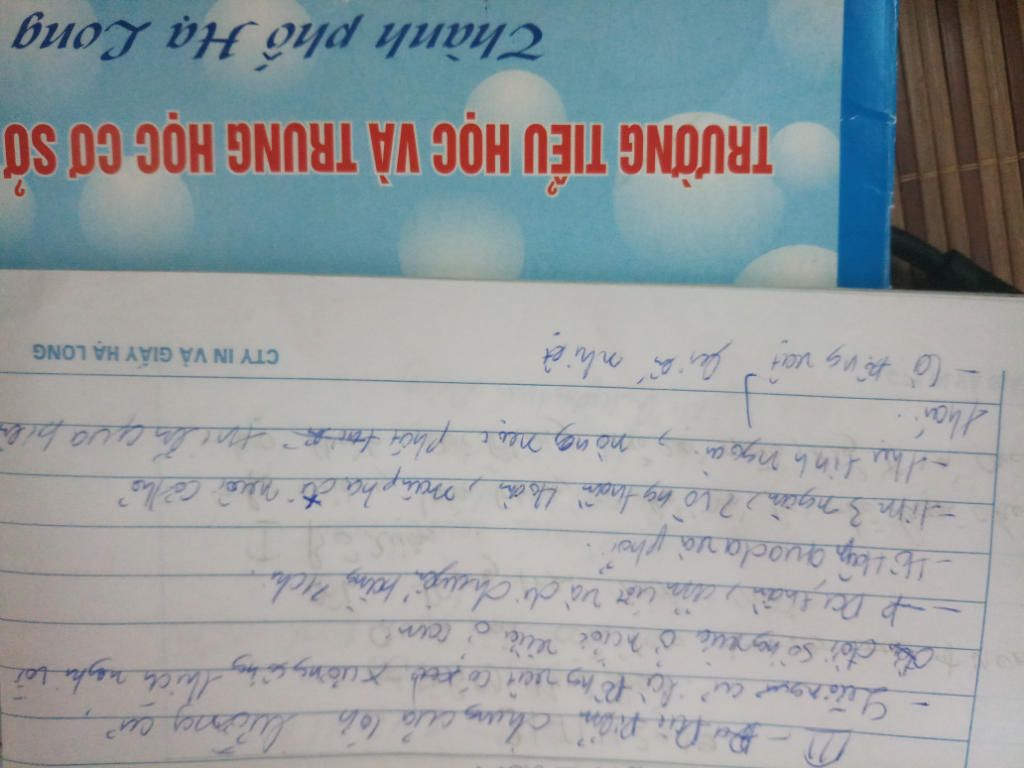 III - Đặc điểm chung của lớp lưỡng cư
- Lưỡng cư là động vật có xương sống thích nghi với
đời sống vừa ở nước vừa ở cạn.
- Da trần, ẩm ướt và di chuyển bằng 4 chi.
- Hô hấp qua da và phổi.
- tim 3 ngăn, 2 vòng tuần hoàn, máu pha đi nuôi cơ thể
- thụ tinh ngoài, nòng nọc phát triển qua biến
thái.
- Là động vật biến nhiệt
CTY IN VÀ GIẤY HẠ LONG
TRƯỜNG TIỂU HỌC VÀ TRUNG HỌC CƠ SỞ
Thành phố Hạ Long